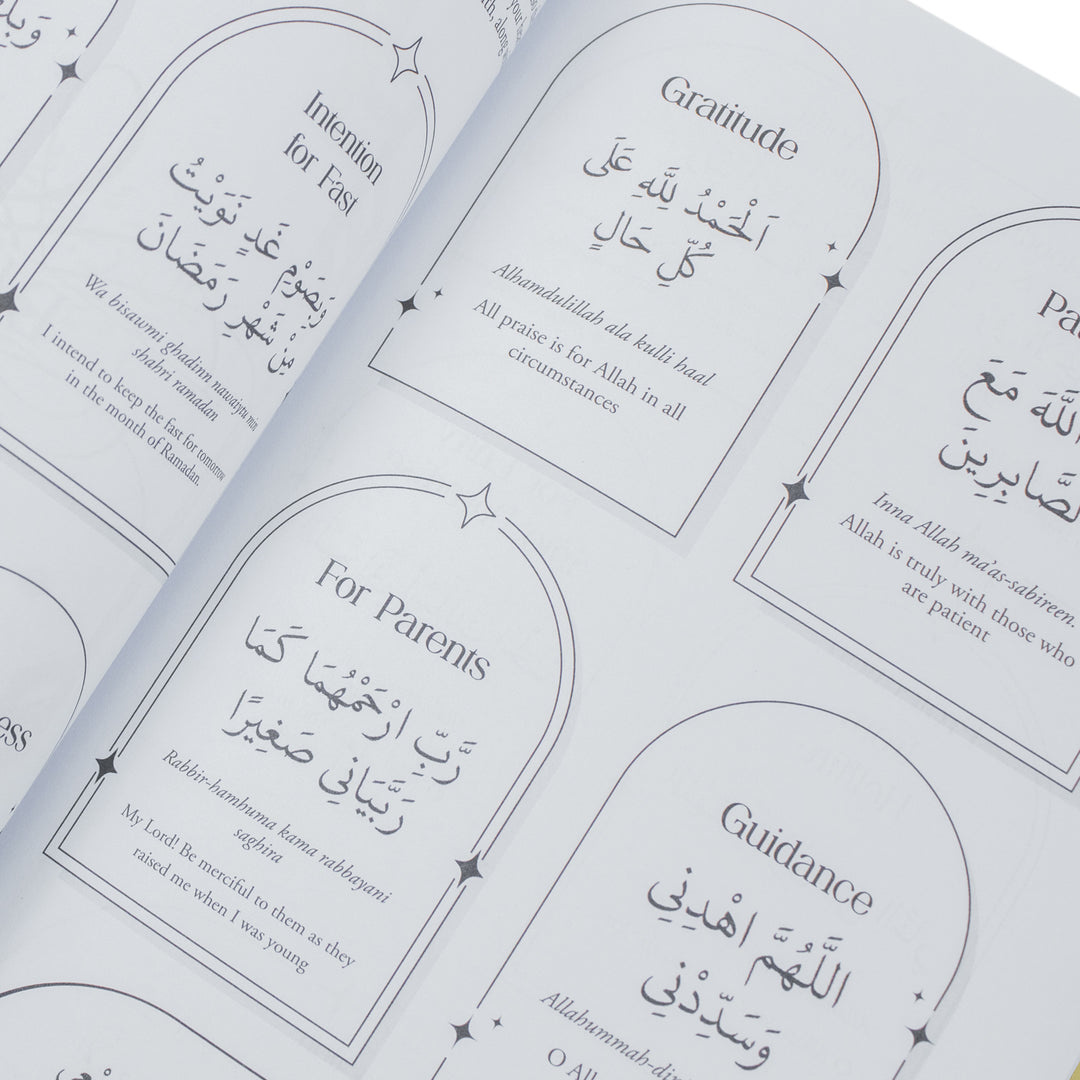 Intention
for Fast
وَبِصَوْمِ غَدٍ نَوَيْتُ
مِنْ شَهْرِ رَمَضَانَ
Wa bisawmi ghadinn nawaiytu min
shahri ramadan
I intend to keep the fast for tomorrow
in the month of Ramadan.
Gratitude
اَلْحَمْدُ لِلَّهِ عَلَى
كُلِّ حَالٍ
Alhamdulillah ala kulli haal
All praise is for Allah in all
circumstances
اللَّهَ مَعَ
الصَّابِرِينَ
Inna Allah ma'as-sabireen.
Allah is truly with those who
are patient
For Parents
رَّبِّ ارْحَمْهُمَا كَمَا
رَبَّيَانِي صَغِيرًا
Rabbir-hamhuma kama rabbayani
saghira
My Lord! Be merciful to them as they
raised me when I was young
Guidance
اللَّهُمَّ اهْدِنِي
وَسَدِّدْنِي
Allahummah-di
O All
ess